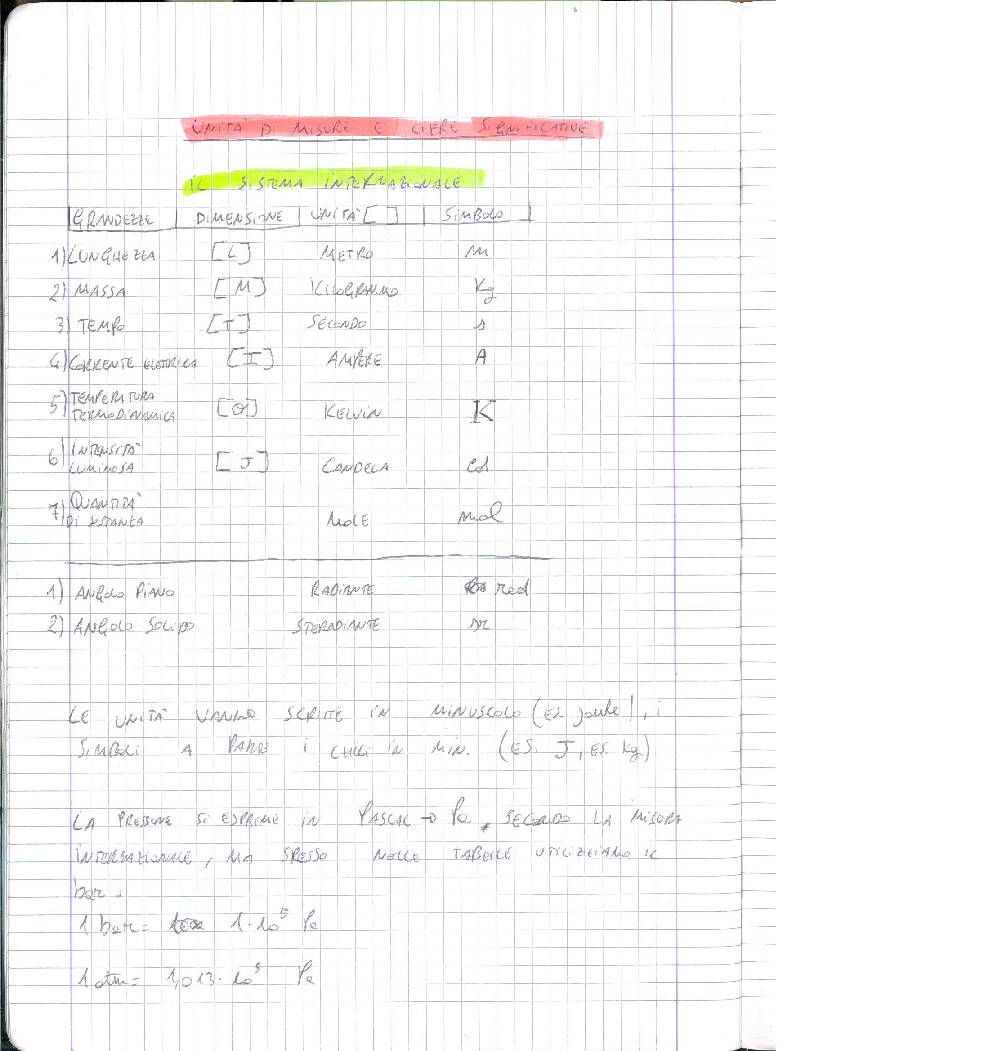 UNITÀ DI MISURE E CIFRE SIGNIFICATIVE
IL SISTEMA INTERNAZIONALE
GRANDEZZE | DIMENSIONE | UNITÀ [ ] | SIMBOLO
1) LUNGHEZZA [L] METRO m
2) MASSA [M] KILOGRAMMO Kg
3) TEMPO [T] SECONDO s
4) CORRENTE ELETTRICA [I] AMPERE A
5) TEMPERATURA TERMODINAMICA [Θ] KELVIN K
6) INTENSITÀ LUMINOSA [J] CANDELA cd
7) QUANTITÀ DI SOSTANZA MOLE mol
1) ANGOLO PIANO RADIANTE rad
2) ANGOLO SOLIDO STERADIANTE sr
LE UNITÀ VANNO SCRITTE IN MINUSCOLO (ES. joule), i
SIMBOLI A PARTE I CHILI IN MIN. (ES. J, ES. Kg)
LA PRESSIONE SI ESPRIME IN PASCAL → Pa, SECONDO LA MISURA
INTERNAZIONALE, MA SPESSO NELLE TABELLE UTILIZZIAMO IL
bar.
1 bar = 1·10⁵ Pa
1 atm = 1,013·10⁵ Pa